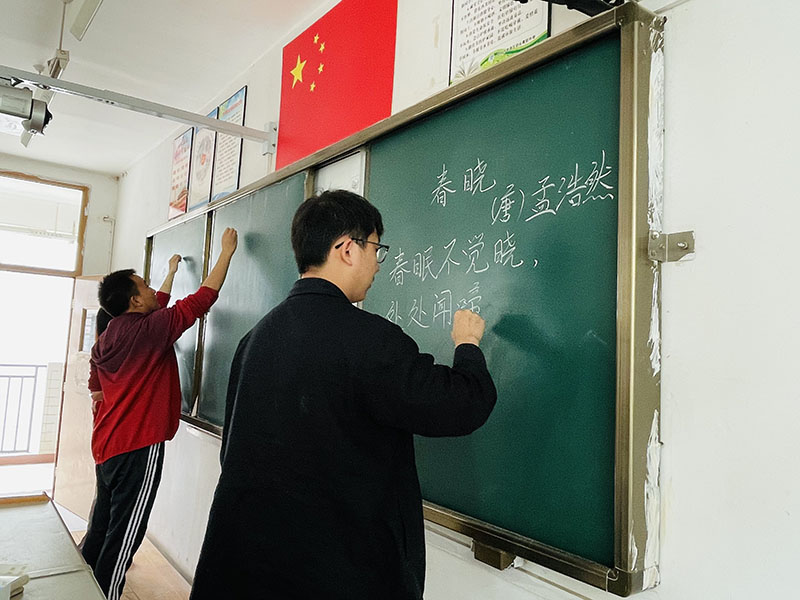 春晓
(唐)孟浩然
春眠不觉晓，
处处闻啼